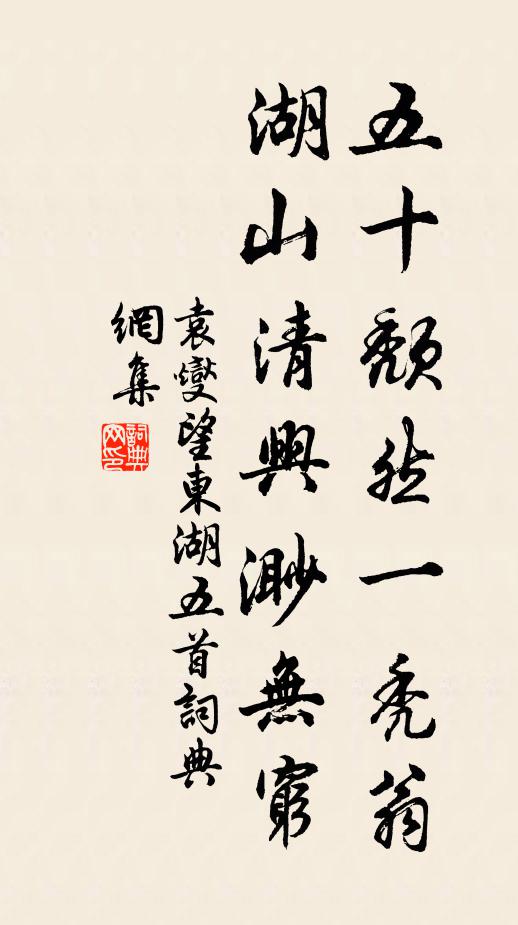 五十頹然一禿翁
湖山清興渺無窮
袁燮望東湖五首詞典
網集
詞典網印